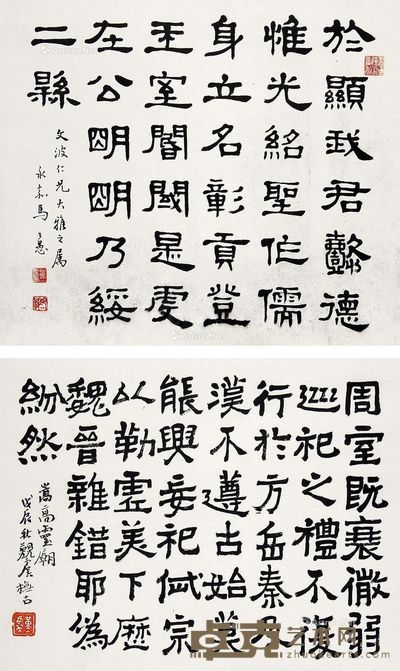 於顯我君懿德
惟光紹聖作儒
身立名彰貢登
王室閽閣是虔
在公明明乃綏
二縣
文波仁兄大雅之属
永嘉馬公愚
周室既衰微弱
巡祀之禮不復
行於方岳秦及
漢不遵古始
能興妄祀岱宗
以勒虛美下歷
魏晉雜錯耶偽
紛然
嵩高靈廟
戊辰秋